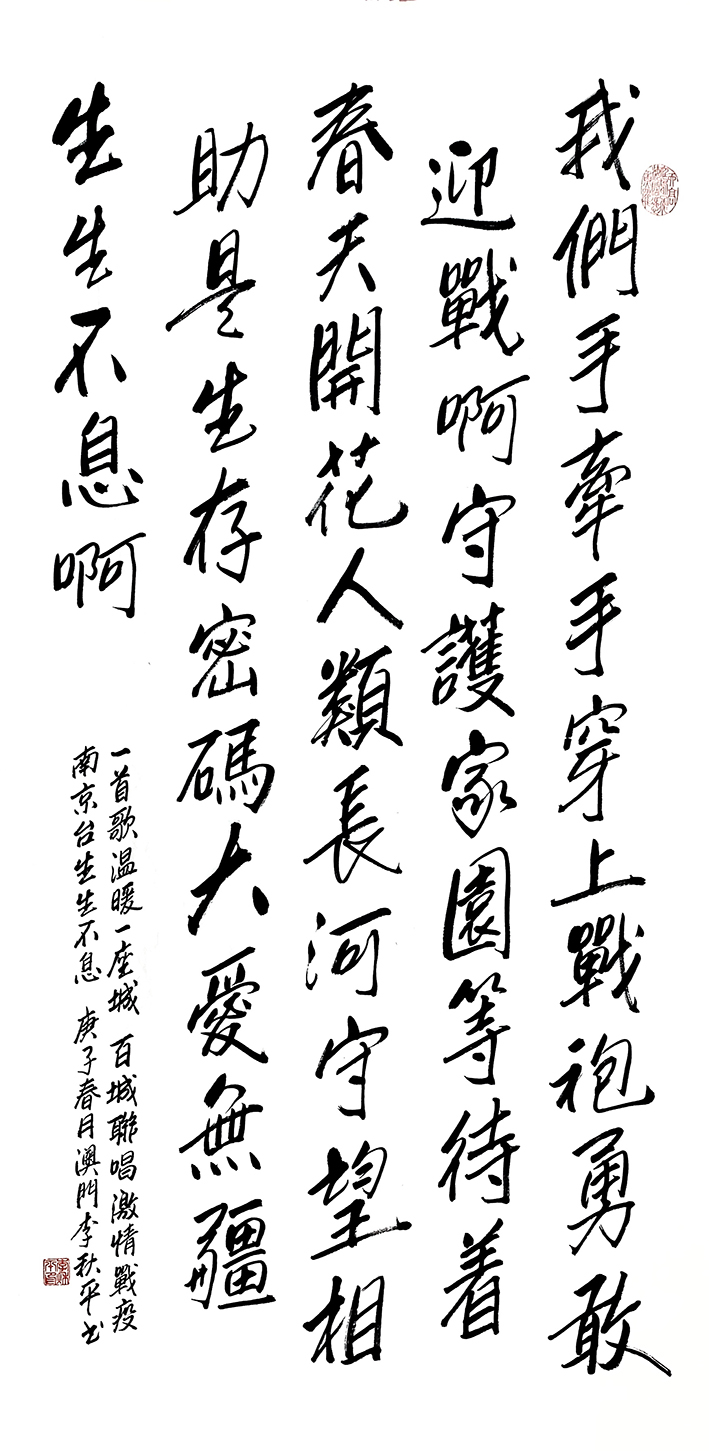 我們手牽手穿上戰袍勇敢
迎戰啊守護家園等待着
春天開花人類長河守望相
助是生存密碼大愛無疆
生生不息啊
一首歌温暖一座城 百城聯唱激情戰疫
南京台生生不息 庚子春月澳門李秋平书